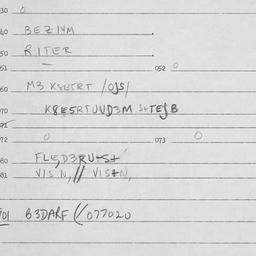 030 0
040 BEZ14M
050 RITER
051 — 052 0
060 M3 X8E5RT /OJS/
070 X8E5RTUUD3M S+TEJB
071
072 0 073 0
080 FL5D3RU+S+
081 VIS'N, // VIS+N,
701 B3DARF (/077020